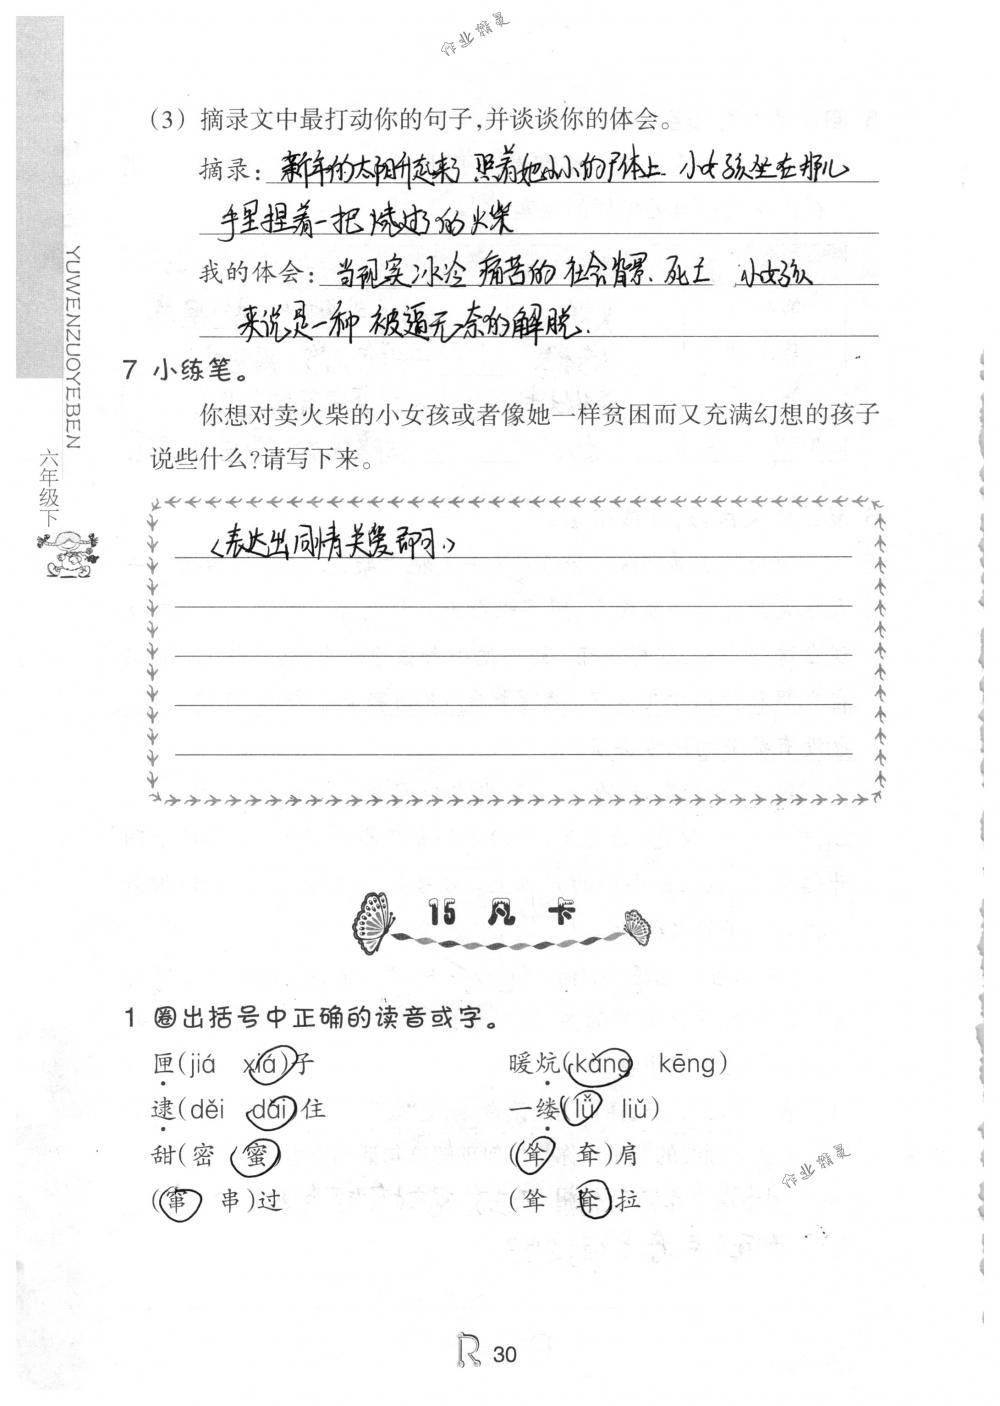 作业精灵
(3) 摘录文中最打动你的句子,并谈谈你的体会。
摘录: 新年的太阳升起来了 照着她小小的尸体上. 小女孩坐在那儿
手里捏着一把烧过了的火柴
我的体会: 当现实冰冷 痛苦的 社会背景. 死亡 小女孩
来说是一种 被逼无奈的解脱.
YUWENZUOYEBEN
六年级下
7 小练笔。
你想对卖火柴的小女孩或者像她一样贫困而又充满幻想的孩子
说些什么?请写下来。
(表达出同情关爱即可.)
15 凡 卡
1 圈出括号中正确的读音或字。
匣(jiá xiá)子 暖炕(kàng kēng)
逮(děi dài)住 一缕(lǚ liǔ)
甜(密 蜜) (耸 耷)肩
(窜 串)过 (耸 耷)拉
作业精灵
R 30